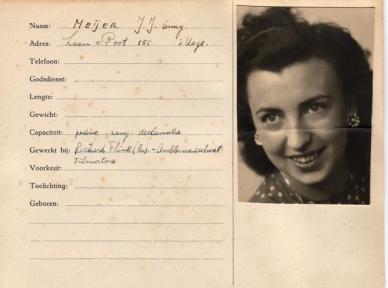 Naam: MEIJER J.J.
Adres: Laan v. Poot 155
Telefoon:
Godsdienst:
Lengte:
Gewicht:
Capaciteit: piano zang declamatie
Gewerkt bij: Richard Flink
Voorkeur:
Toelichting:
Geboren: